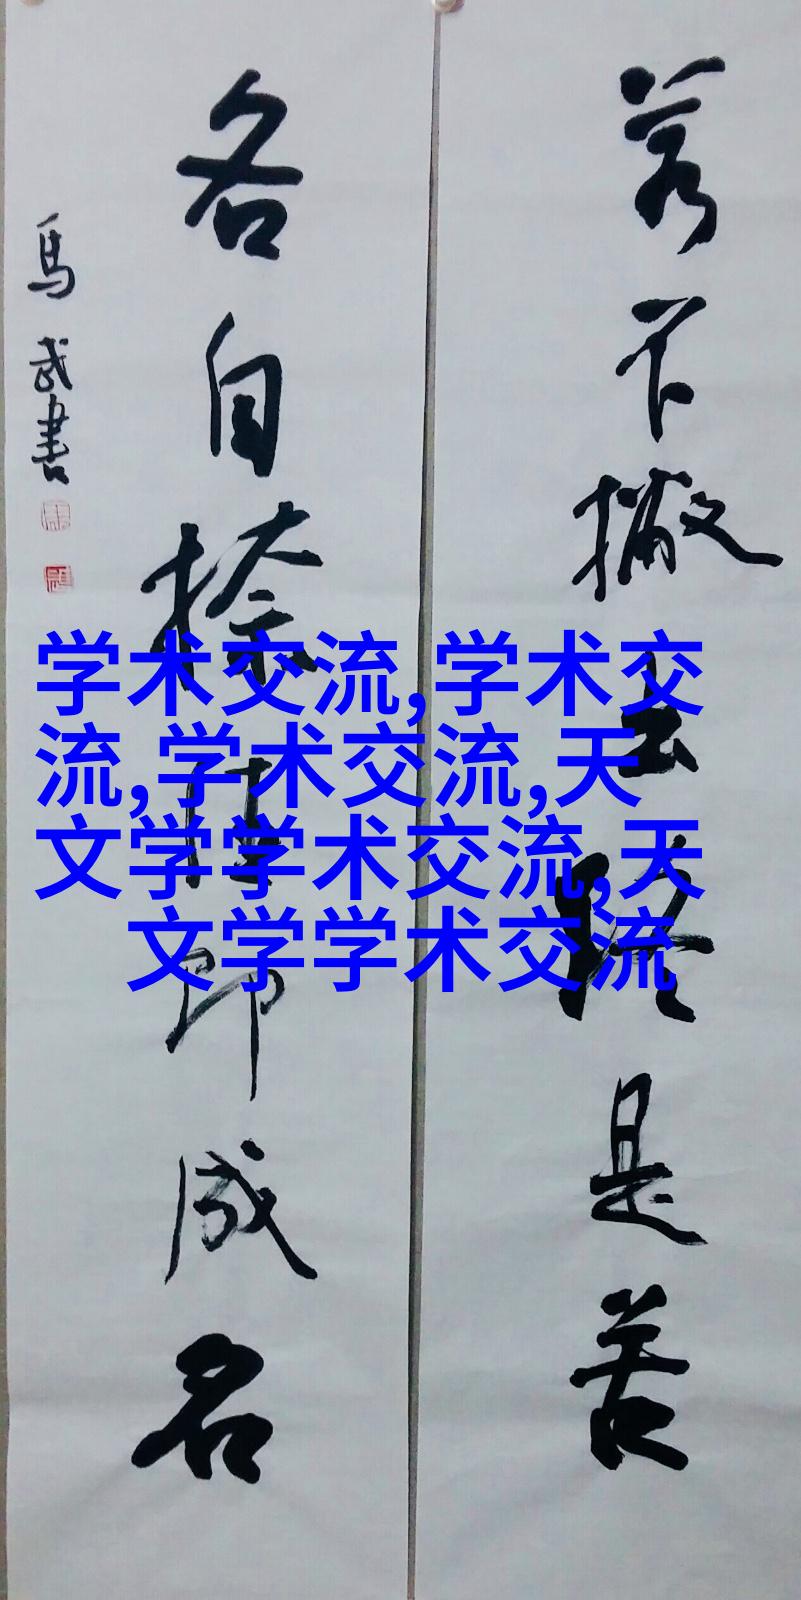 若不撇去終是苦
各自捺住即成名
馬武書
学术交流,学术交
流,学术交流,天
文学学术交流,天
文学学术交流